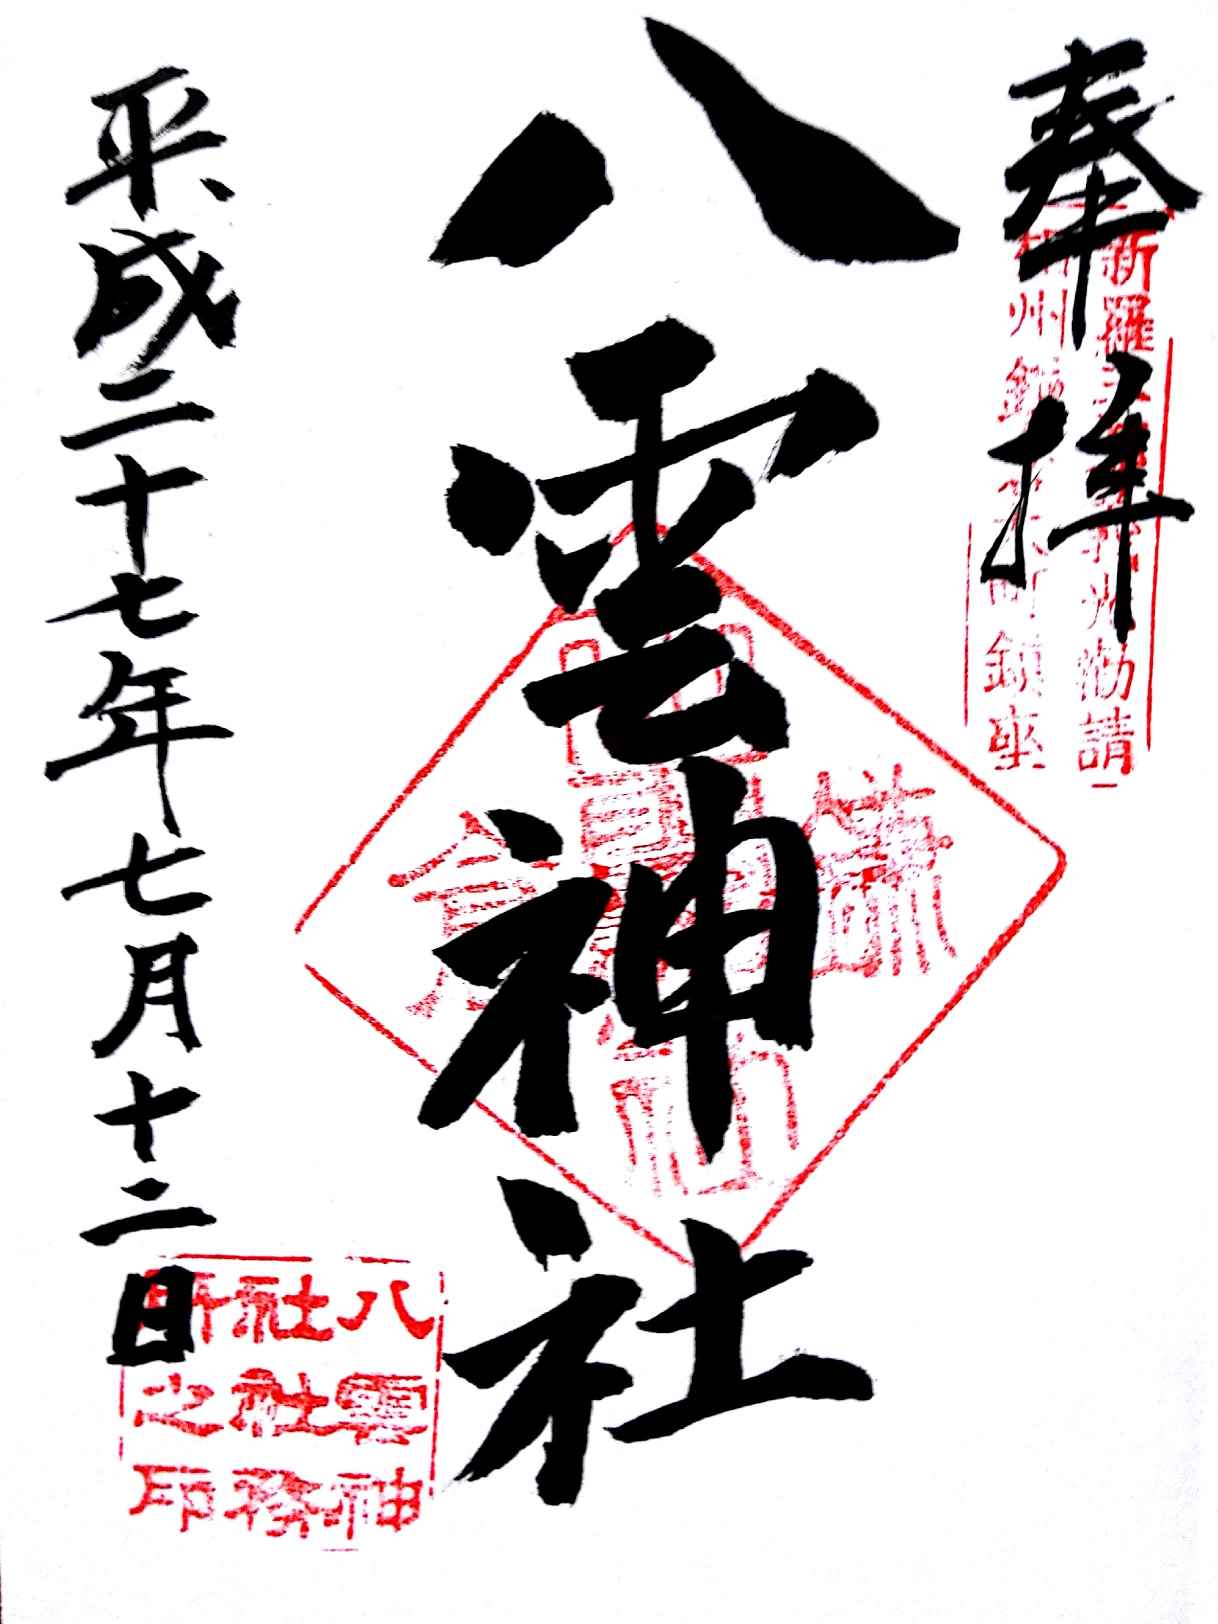 奉拝
新羅三郎義光勧請
相州鎌倉大町鎮座
八雲神社
鎌倉
八雲神社
平成二十七年七月十二日
八雲神
社社務
所之印